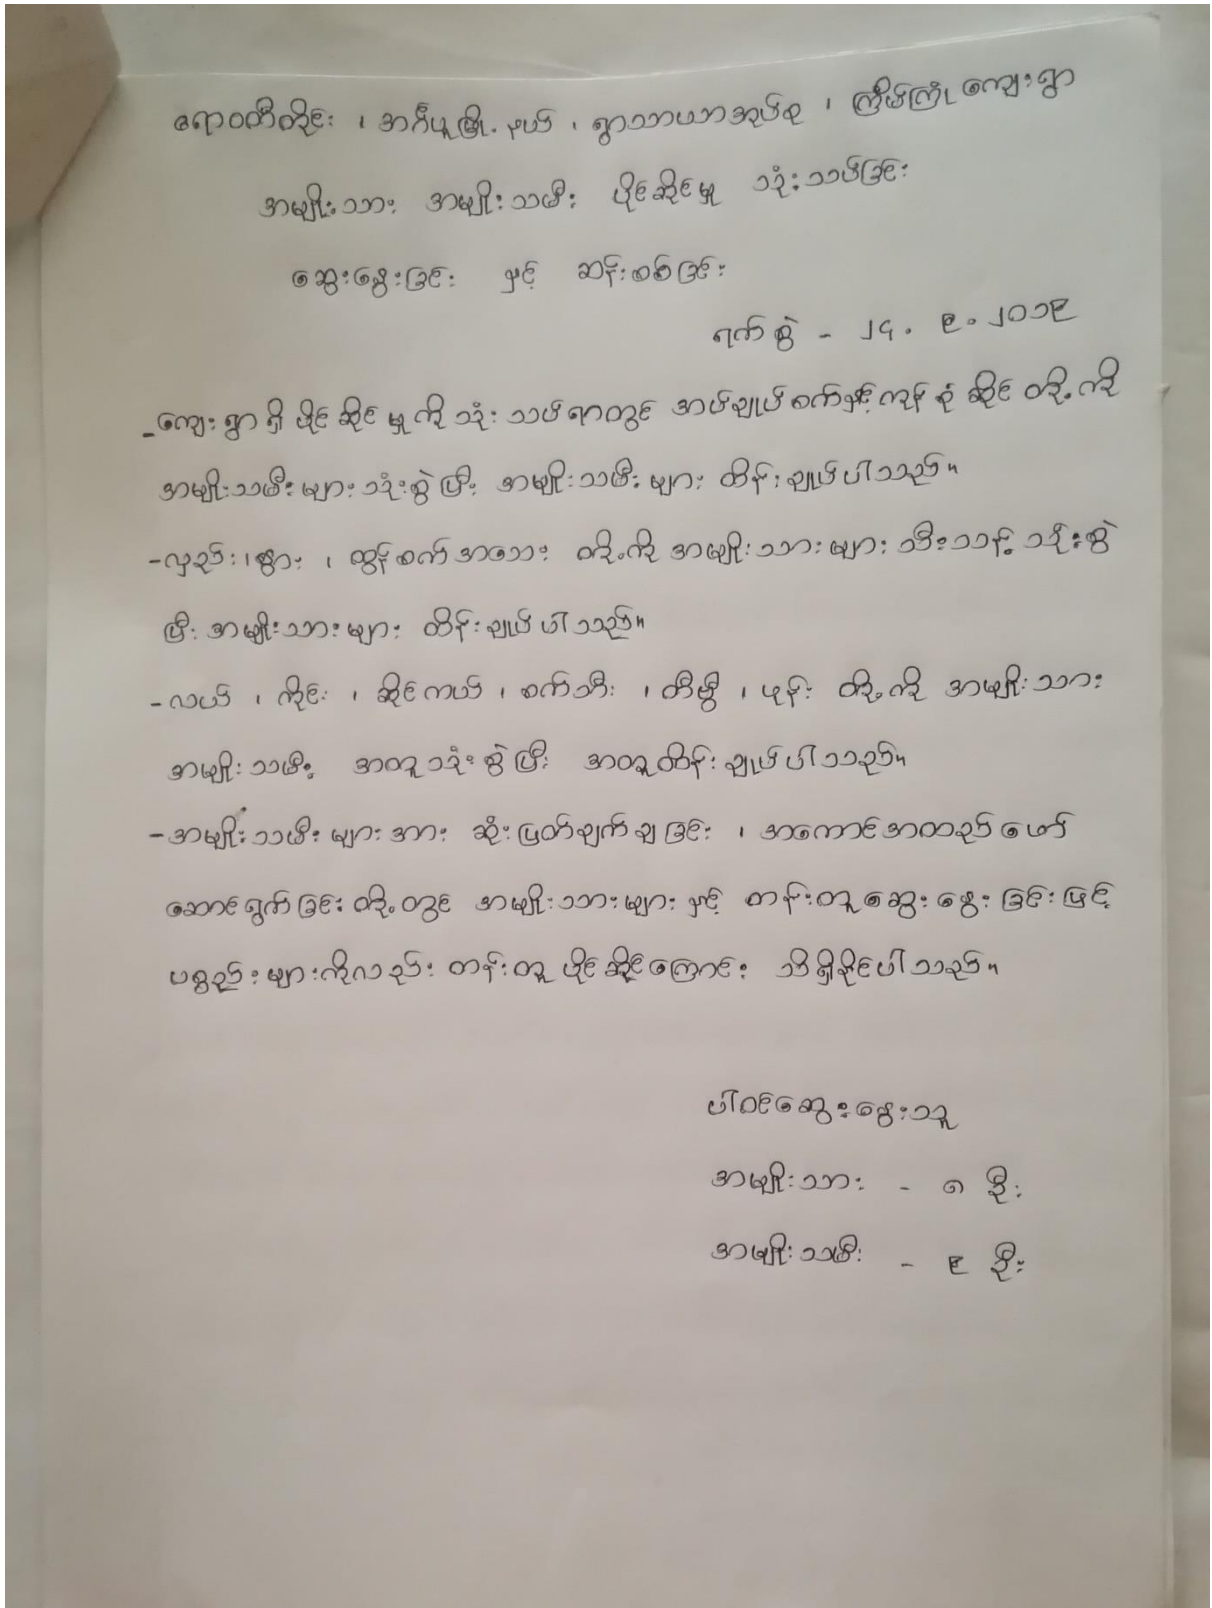 ဧရာဝတီတိုင်း ၊ အင်္ဂပူမြို့နယ် ၊ ရွာသာယာအုပ်စု ၊ ကြိမ်ကြုံ ကျေးရွာ
အမျိုးသား အမျိုးသမီး ပိုင်ဆိုင်မှု သုံးသပ်ခြင်း
ဆွေးနွေးခြင်း နှင့် ဆန်းစစ်ခြင်း
ရက်စွဲ - ၂၄.၉.၂၀၁၉
-ကျေးရွာရှိ ပိုင်ဆိုင်မှုကို သုံးသပ်ရာတွင် အပ်ချုပ်စက်နှင့် ကုန်စုံဆိုင် တို့ကို
အမျိုးသမီးများ သုံးစွဲပြီး အမျိုးသမီးများ ထိန်းချုပ်ပါသည်။
-လှည်း၊ နွား ၊ ထွန်စက်အသေး တို့ကို အမျိုးသားများ သီးသန့် သုံးစွဲ
ပြီး အမျိုးသားများ ထိန်းချုပ်ပါသည်။
-လယ် ၊ ကိုင်း ၊ ဆိုင်ကယ် ၊ စက်ဘီး ၊ တီဗွီ ၊ ဖုန်း တို့ကို အမျိုးသား
အမျိုးသမီး အတူသုံးစွဲပြီး အတူထိန်းချုပ်ပါသည်။
-အမျိုးသမီးများအား ဆုံးဖြတ်ချက်ချခြင်း ၊ အကောင်အထည်ဖော်
ဆောင်ရွက်ခြင်းတို့တွင် အမျိုးသားများနှင့် တန်းတူဆွေးနွေးခြင်းဖြင့်
ပစ္စည်းများကိုလည်း တန်းတူပိုင်ဆိုင်ကြောင်း သိရှိနိုင်ပါသည်။
ပါဝင်ဆွေးနွေးသူ
အမျိုးသား - ၈ ဦး
အမျိုးသမီး - ၉ ဦး